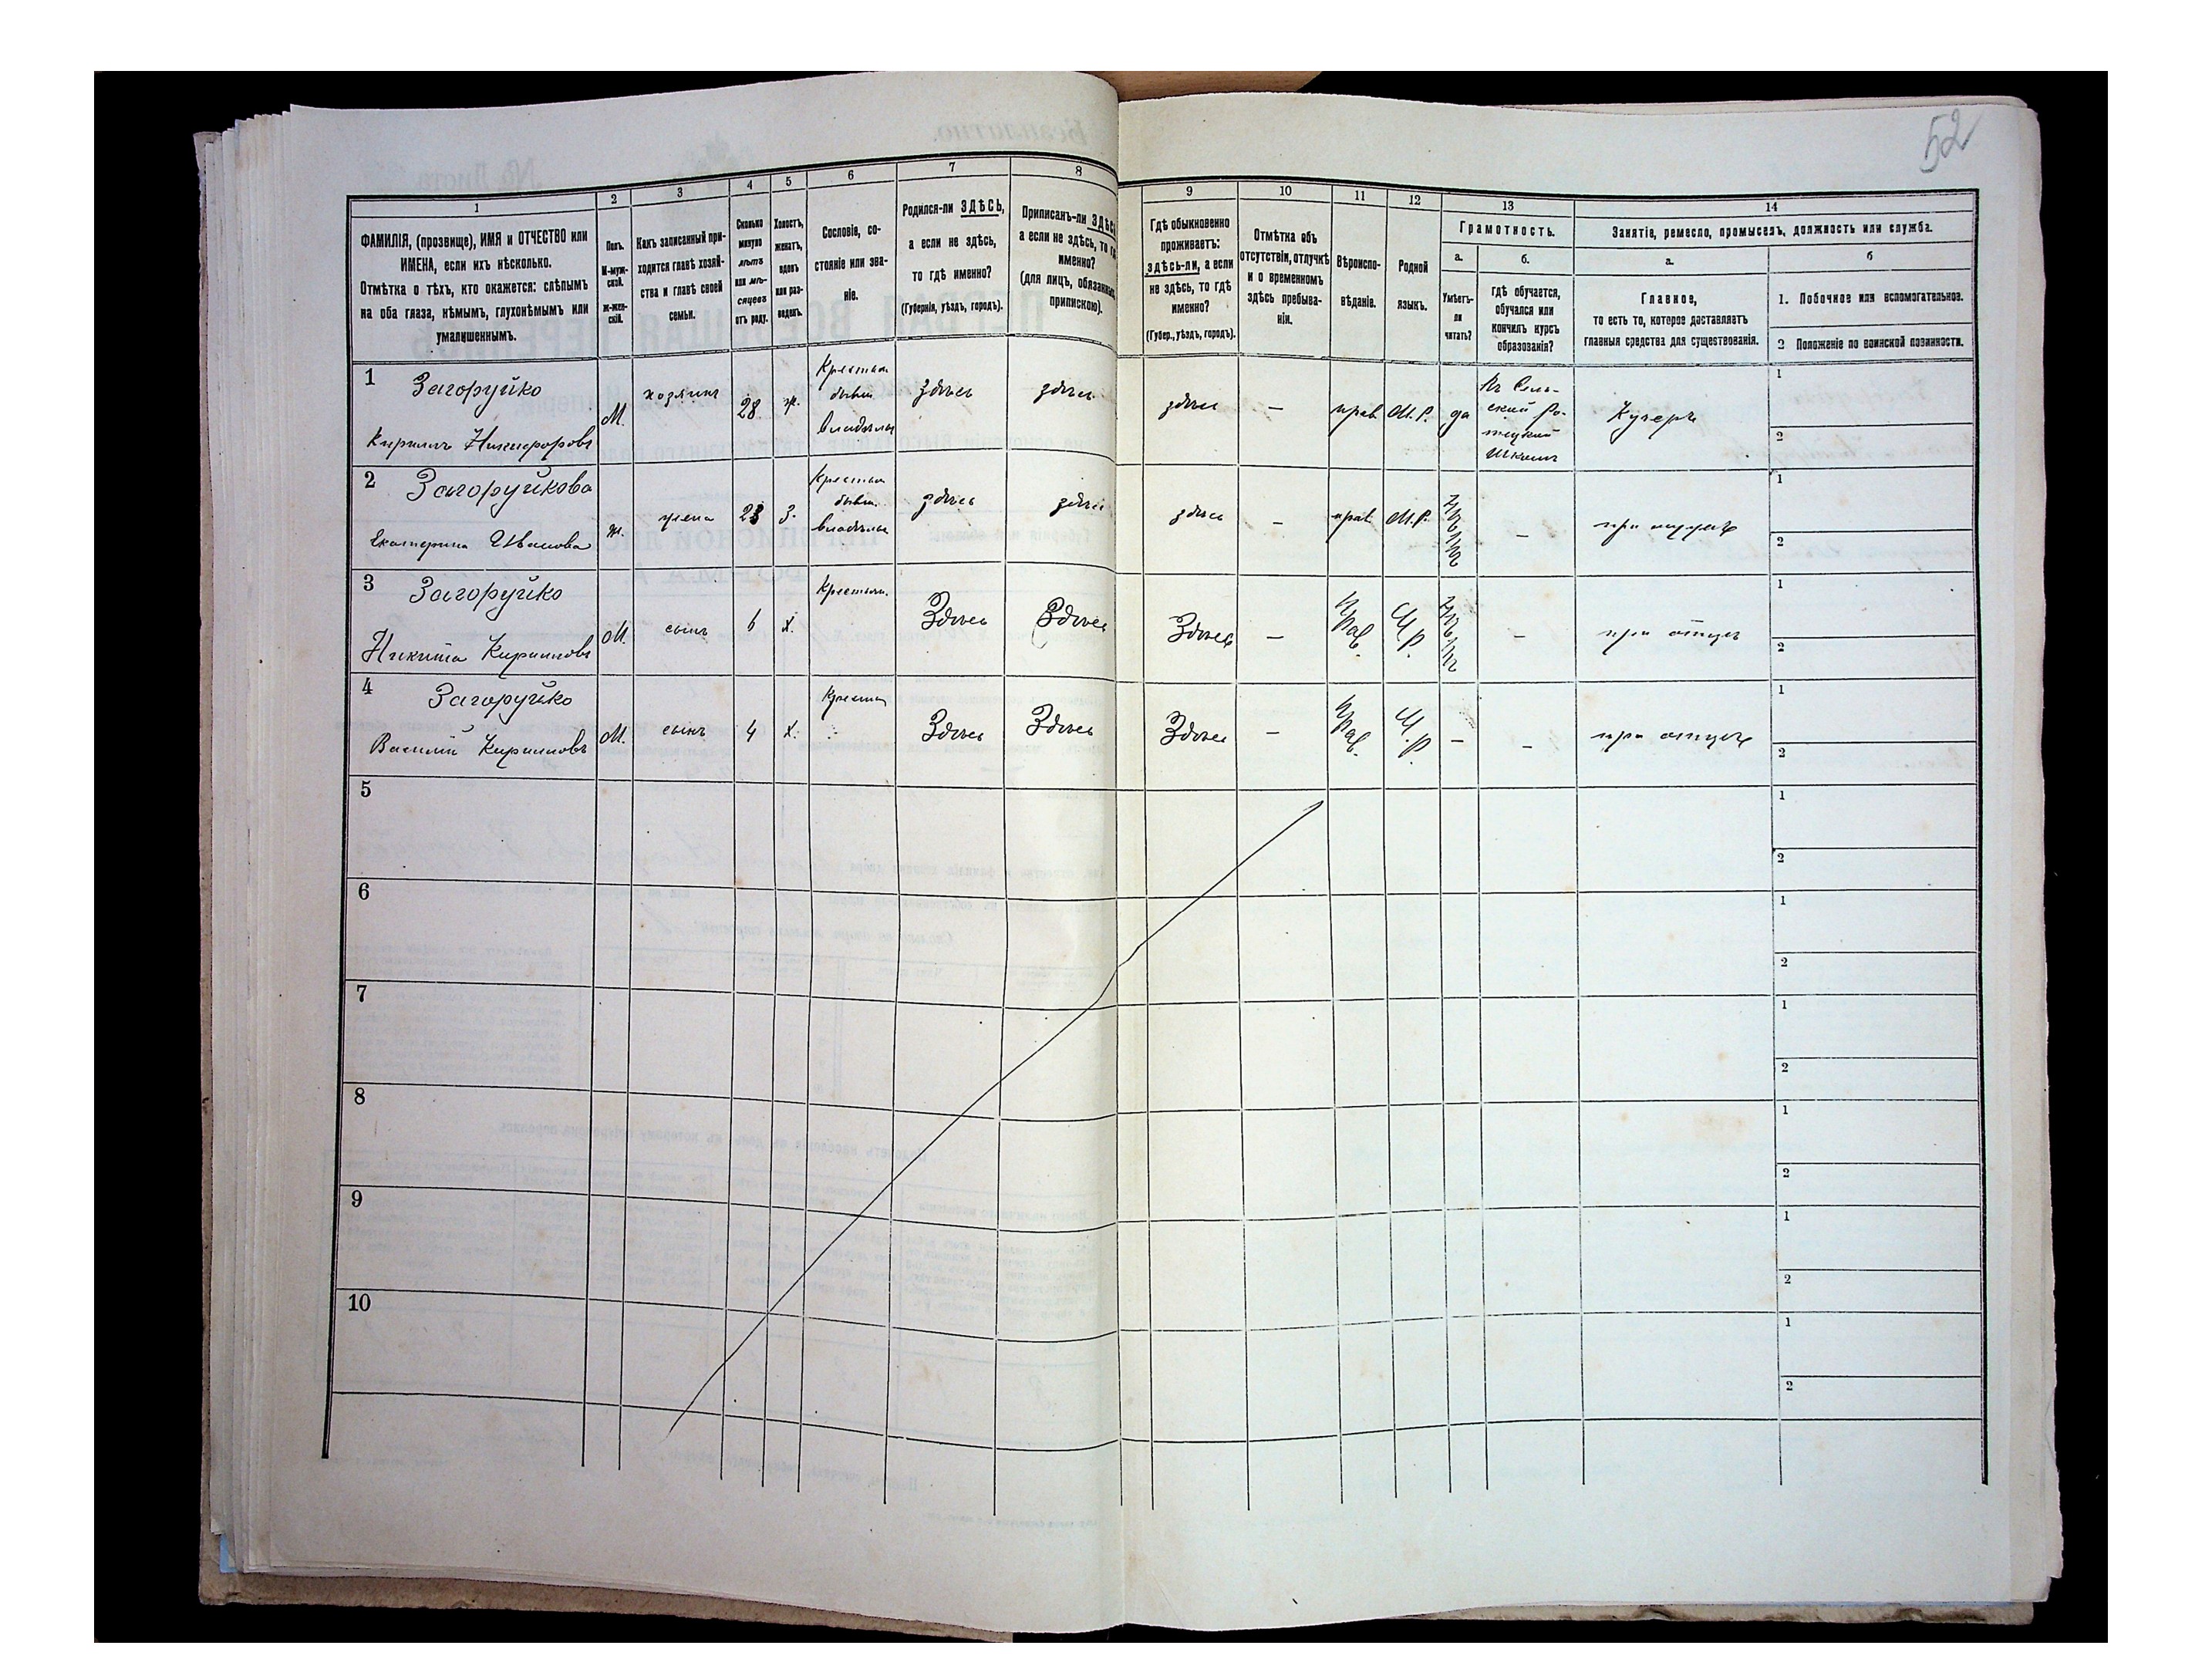 52
1
2
3
4
5
6
7
8
9
10
11
12
13
14
ФАМИЛІЯ, (прозвище), ИМЯ и ОТЧЕСТВО или
ИМЕНА, если ихъ нѣсколько.
Отмѣтка о тѣхъ, кто окажется: слѣпымъ
на оба глаза, нѣмымъ, глухонѣмымъ или
умалишеннымъ.
Полъ.
М-муж-
ской.
ж-жен-
скій.
Какъ записанный при-
ходится главѣ хозяй-
ства и главѣ своей
семьи.
Сколько
минуло
лѣтъ
или мѣ-
сяцевъ
отъ роду.
Холостъ,
женатъ,
вдовъ
или раз-
веденъ.
Сословіе, со-
стояніе или зва-
ніе.
Родился-ли ЗДѢСЬ,
а если не здѣсь,
то гдѣ именно?
(Губернія, уѣздъ, городъ).
Приписанъ-ли ЗДѢСЬ
а если не здѣсь, то гдѣ
именно?
(для лицъ, обязанныхъ
припискою).
Гдѣ обыкновенно
проживаетъ:
здѣсь-ли, а если
не здѣсь, то гдѣ
именно?
(Губер., уѣздъ, городъ).
Отмѣтка объ
отсутствіи, отлучкѣ
и о временномъ
здѣсь пребыва-
ніи.
Вѣроиспо-
вѣданіе.
Родной
языкъ.
Грамотность.
а.
Умѣетъ-
ли
читать?
б.
гдѣ обучается,
обучался или
кончилъ курсъ
образованія?
Занятіе, ремесло, промыселъ, должность или служба.
а.
Главное,
то есть то, которое доставляетъ
главныя средства для существованія.
б
1. Побочное или вспомогательное.
2 Положеніе по воинской повинности.
1 Загоруйко
Кириллъ Никифоровъ
М. хозяинъ 28 ж. Крестьян бывш. Владѣльч здѣсь здѣсь здѣсь — прав. М.Р. да
Въ Сель-
ской
Школѣ
Кучеръ
1
2
2 Загоруйкова
Екатерина Иванова
ж. жена 23 з. Крестьян бывш. владѣльч здѣсь здѣсь здѣсь — прав. М.Р. нѣтъ — при мужѣ
1
2
3 Загоруйко
Никита Кириловъ
М. сынъ 6 х. Крестьян. Здѣсь Здѣсь Здѣсь — Прав. М.Р. нѣтъ — при отцѣ
1
2
4 Загоруйко
Василій Кириловъ
М. сынъ 4 х. Крестьян Здѣсь Здѣсь Здѣсь — Прав. М.Р. — — при отцѣ
1
2
5
1
2
6
1
2
7
1
2
8
1
2
9
1
2
10
1
2